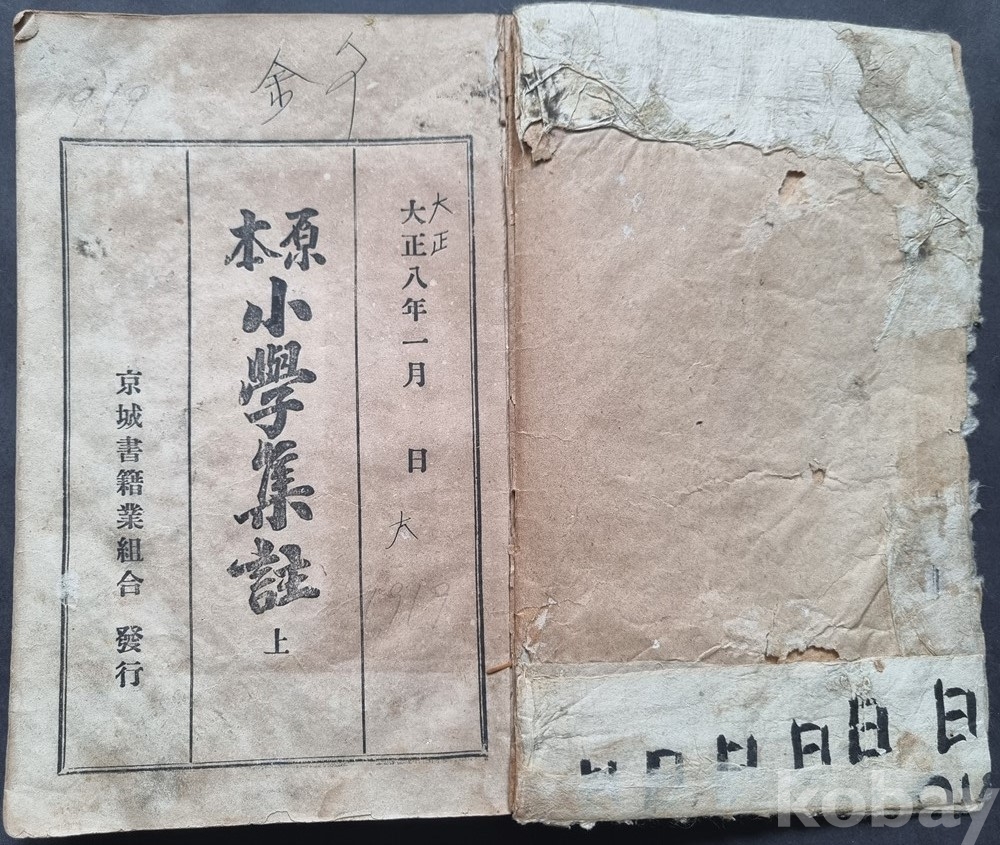 1919
金
大正
大正八年一月 日
大
1919
原本
小學集註 上
京城書籍業組合 發行
日
日
日
kobay